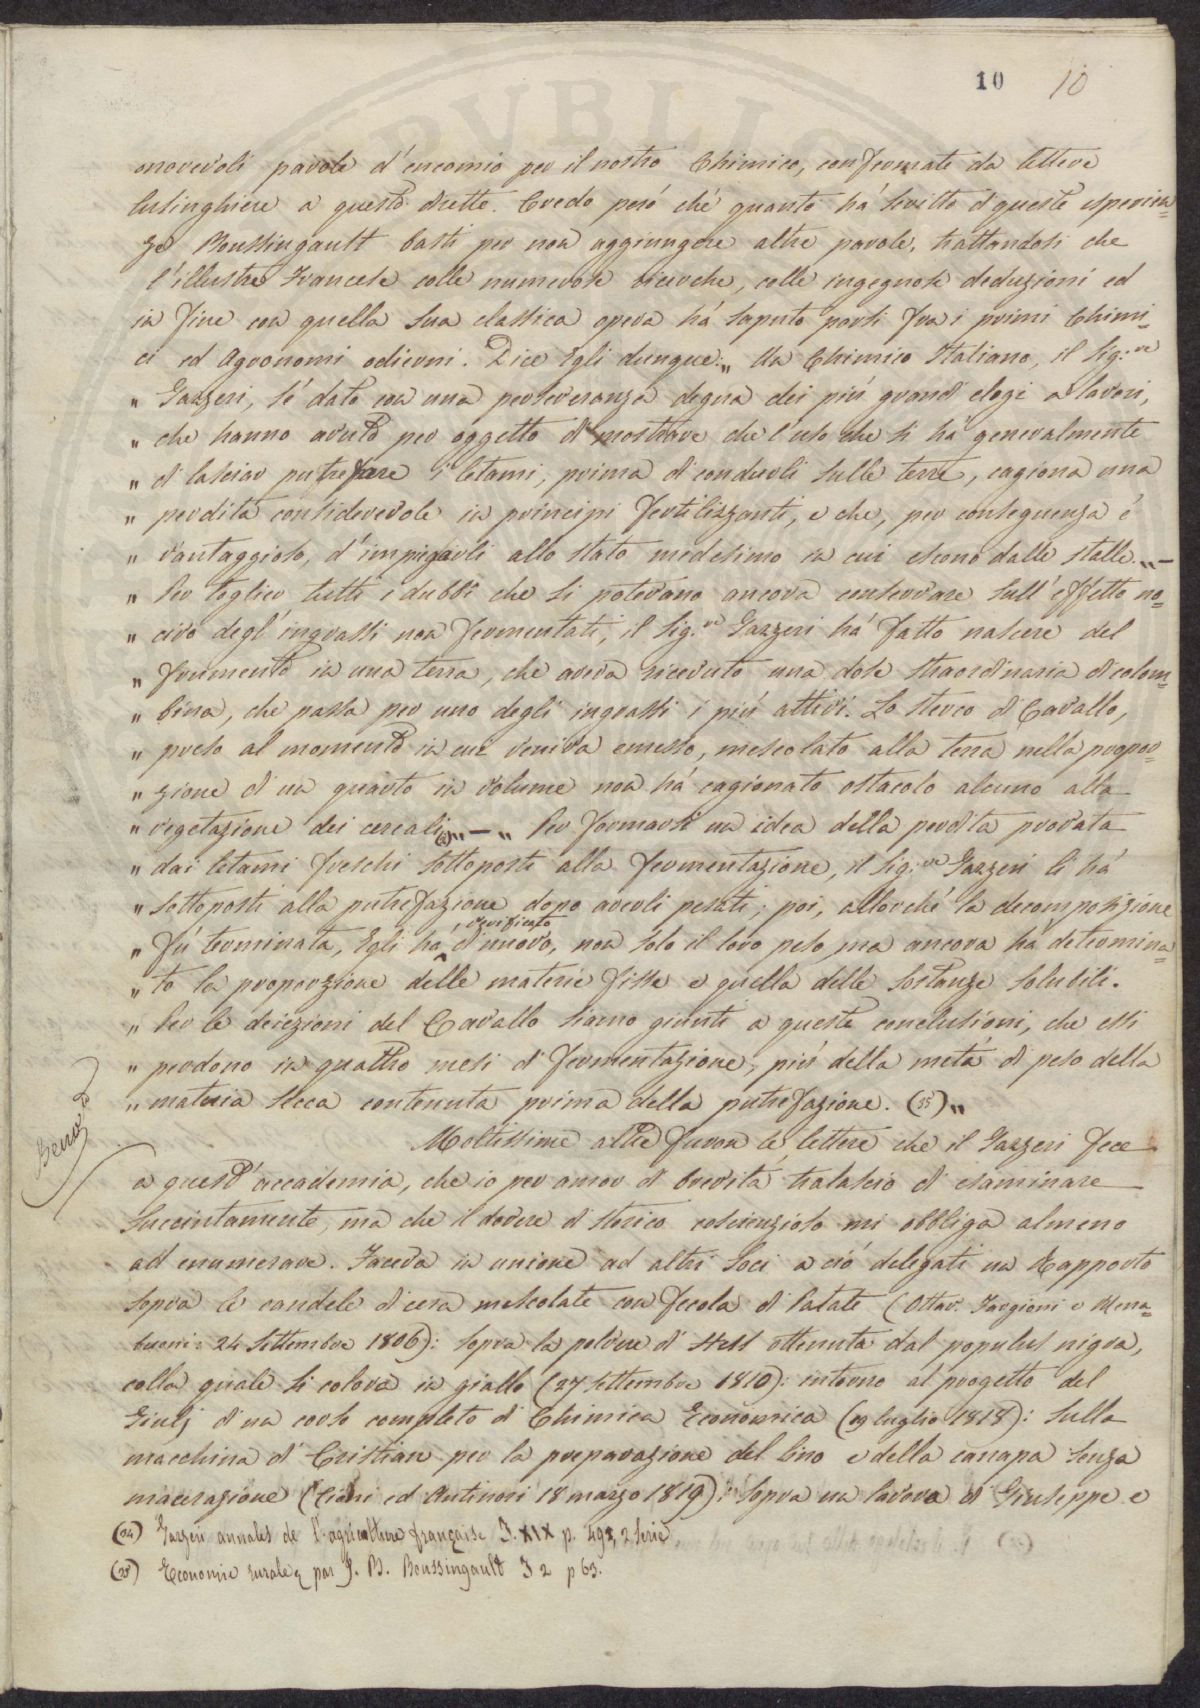 10 10
norevoli parole d'encomio per il nostro Chimico, confermate da lettere
lusinghiere a questo dirette. Credo peró ché quanto há scritto d queste esperien=
ze Boussingault basti per non aggiungere altre parole, trattandosi che
l'illustre Francese colle numerose ricerche, colle ingegnose deduzioni ed
in fine con quella sua classica opera há saputo porsi fra i primi Chimi=
ci ed Agronomi odierni. Dice Egli dunque: „ Un Chimico Italiano, il Sig:re
„ Gazzeri, s'é dato con una perseveranza degna dei piú grandi elogi a lavori,
„ che hanno avuto per oggetto di mostrare che l'uso che si ha generalmente
„ di lasciar putrefare i letami, prima di condurli sulle terre, cagiona una
„ perdita considerevole in principi fertilizzanti, e che, per conseguenza é
„ vantaggioso, d'impiegarli allo stato medesimo in cui escono dalle stalle „ —
„ Per toglier tutti i dubbi che si potevano ancora conservare sull'effetto no=
„ civo degl'ingrassi non fermentati, il Sig.re Gazzeri há fatto nascere del
„ frumento in una terra, che aveva ricevuto una dose straordinaria di colom=
„ bina, che passa per uno degli ingrassi i piú attivi. Lo sterco di Cavallo,
„ preso al momento in cui veniva emesso, mescolato alla terra nella propor=
„ zione di un quarto in volume non há cagionato ostacolo alcuno alla
„ vegetazione dei cereali (34) „ — „ Per formarsi un idea della perdita provata
„ dai letami freschi sottoposti alla fermentazione, il Sig:re Gazzeri li há
„ sottoposti alla putrefazione dopo averli pesati; poi, allorché la decomposizione
verificato
„ fú terminata, Egli ha, di nuovo, non solo il loro peso, ma ancora há determina=
„ to la proporzione delle materie fisse e quella delle sostanze solubili.
„ Per le deiezioni del Cavallo siamo giunti a queste conclusioni, che essi
„ perdono in quattro mesi di fermentazione, piú della metá di peso della
„ materia secca contenuta prima della putrefazione. (35) „
Moltissime altre furon le lettere che il Gazzeri fece
a quest'accademia, che io per amor di brevitá tralascio di esaminare
succintamente, ma che il dovere di storico coscienzioso mi obbliga almeno
ad enumerare. Faceva in unione ad altri Soci a ció delegati un Rapporto
sopra le candele di cera mescolate con fecola di Patate (Ottav. Targioni e Mena=
buoni: 24 Settembre 1806): sopra la polvere di Hess ottenuta dal populus nigra,
colla quale si colora in giallo (27 Settembre 1810): intorno al progetto del
Giulj di un corso completo di Chimica Economica (19 luglio 1818): Sulla
macchina di Cristian per la preparazione del lino e della canapa senza
macerazione (Cioni ed Antinori 18 marzo 1819): Sopra un lavoro di Giuseppe e
(34) Gazzeri annales de l'agriculture française T. XIX p. 498, 2 Serie
(35) Economie rurale, par J. B. Boussingault T 2 p 63.